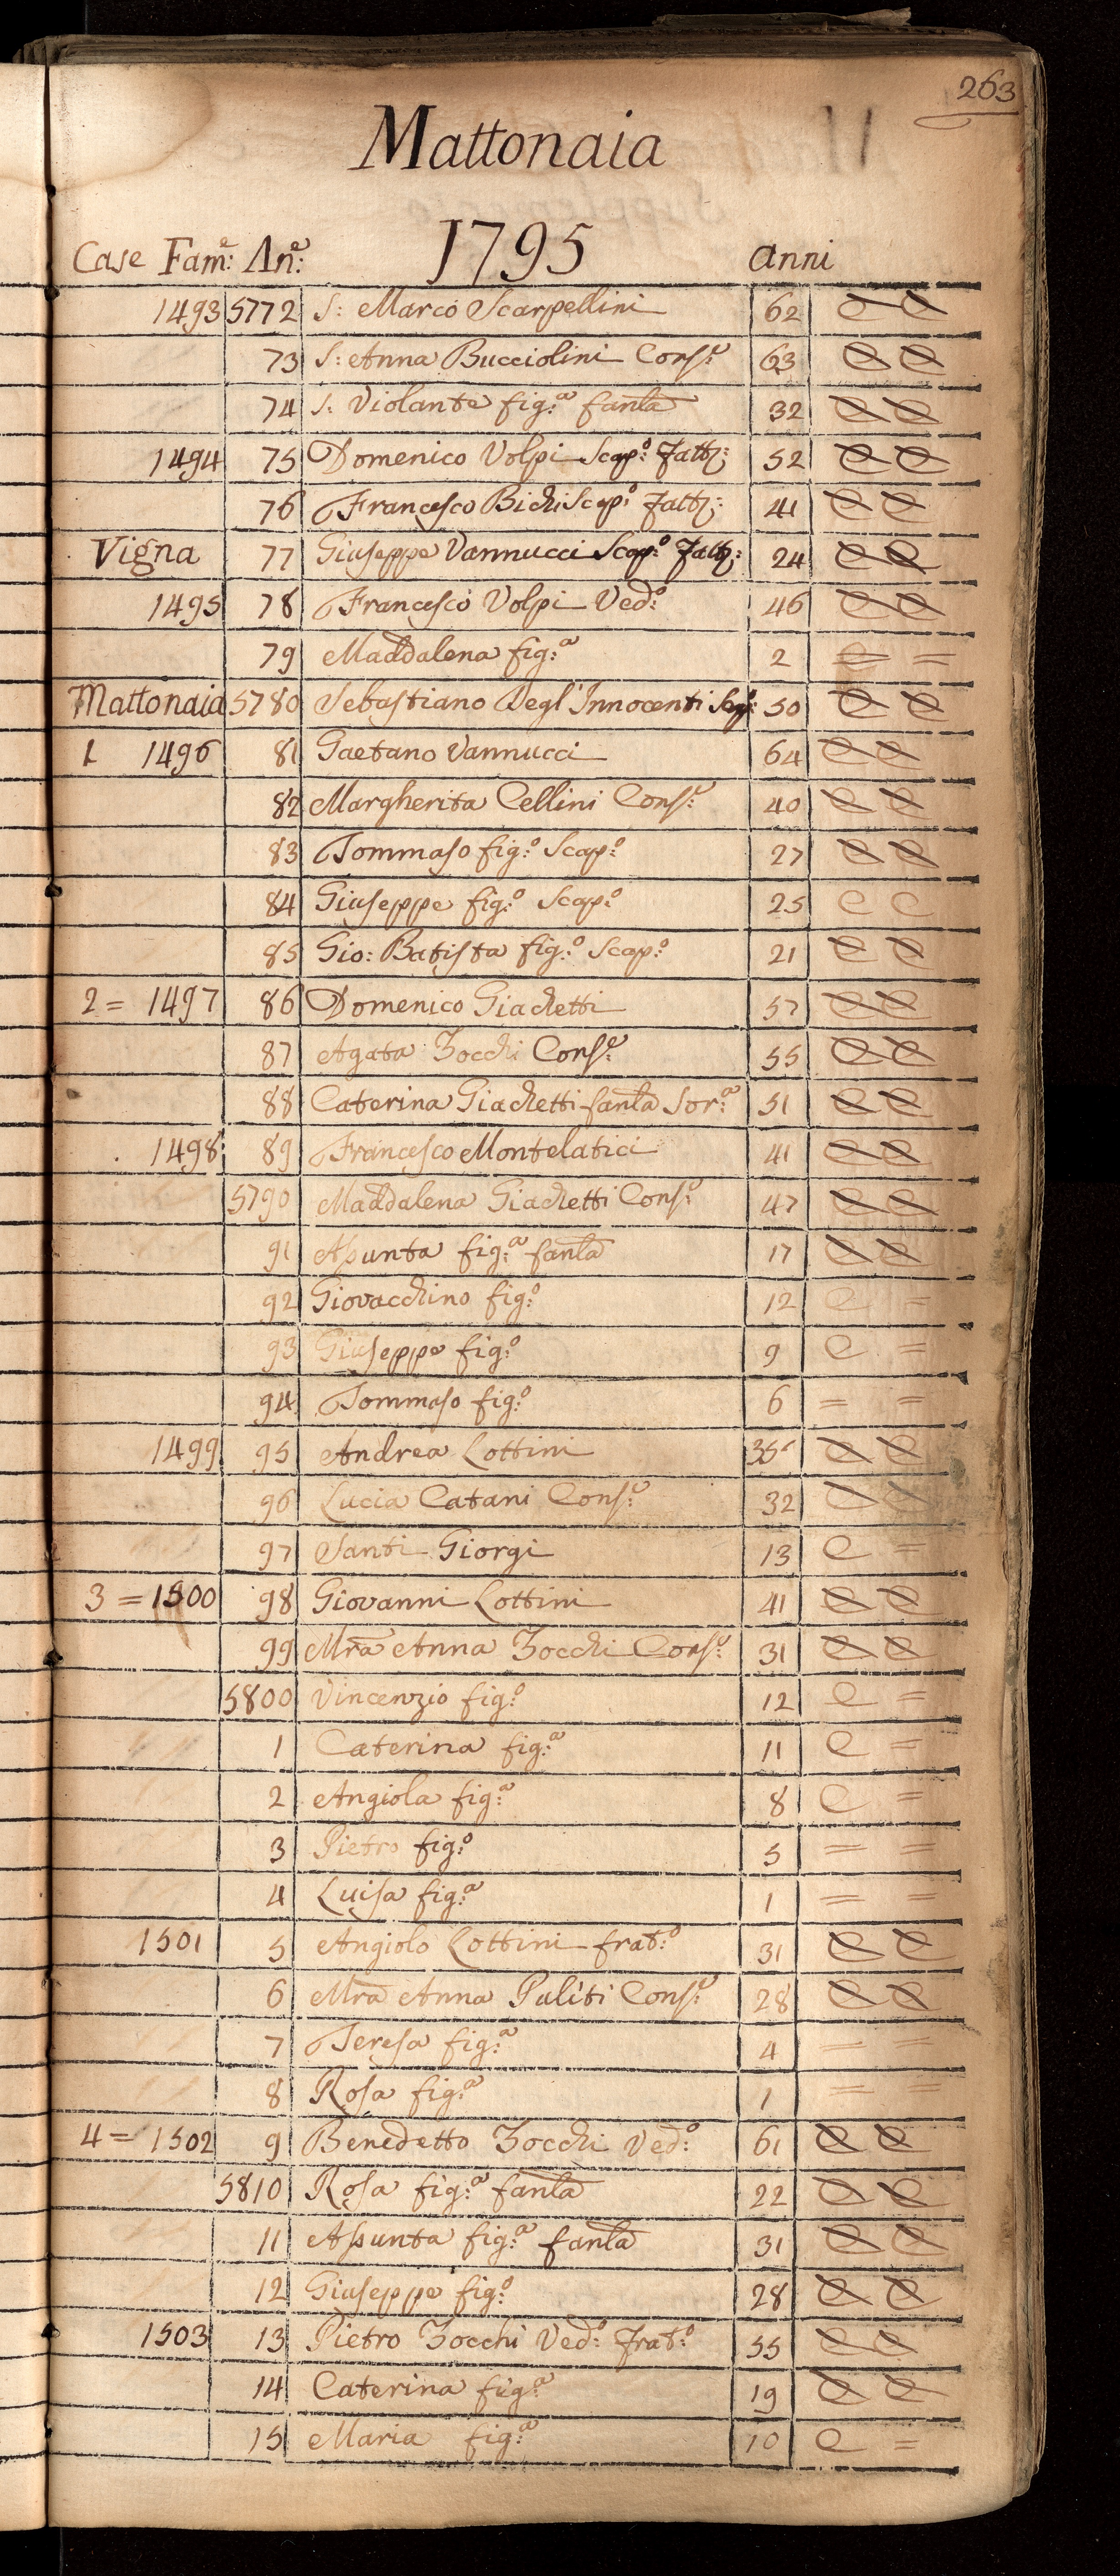 263
Mattonaia
1795
Case Fam:e An:e anni
1493 5772 S: Marco Scarpellini 62 e e
73 S: Anna Bucciolini Cons:e 63 e e
74 S: Violante fig:a fanla 32 e e
1494 75 Domenico Volpi Scap:o Fatt: 52 e e
76 Francesco Bichi Scap:o Fatt: 41 e e
Vigna 77 Giuseppe Vannucci Scap:o Fatt: 24 e e
1495 78 Francesco Volpi Ved:o 46 e e
79 Maddalena fig:a 2 = =
Mattonaia 5780 Sebastiano Degl'Innocenti 50 e e
1 1496 81 Gaetano Vannucci 64 e e
82 Margherita Cellini Cons:e 40 e e
83 Tommaso fig:o Scap:o 27 e e
84 Giuseppe fig:o Scap:o 25 e e
85 Gio: Batista fig:o Scap:o 21 e e
2 = 1497 86 Domenico Giachetti 57 e e
87 Agata Zocchi Cons:e 55 e e
88 Caterina Giachetti fanla Sor:a 51 e e
1498 89 Francesco Montelatici 41 e e
5790 Maddalena Giachetti Cons:e 47 e e
91 Assunta fig:a fanla 17 e e
92 Giovacchino fig:o 12 e =
93 Giuseppe fig:o 9 e =
94 Tommaso fig:o 6 = =
1499 95 Andrea Lottini 35 e e
96 Lucia Catani Cons:e 32 e e
97 Santi Giorgi 13 e =
3 = 1500 98 Giovanni Lottini 41 e e
99 Mra Anna Zocchi Cons:e 31 e e
5800 Vincenzio fig:o 12 e =
1 Caterina fig:a 11 e =
2 Angiola fig:a 8 e =
3 Pietro fig:o 5 = =
4 Luisa fig:a 1 = =
1501 5 Angiolo Lottini frat:o 31 e e
6 Mra Anna Puliti Cons:e 28 e e
7 Teresa fig:a 4 = =
8 Rosa fig:a 1 = =
4 = 1502 9 Benedetto Zocchi Ved:o 61 e e
5810 Rosa fig:a fanla 22 e e
11 Assunta fig:a fanla 31 e e
12 Giuseppe fig:o 28 e e
1503 13 Pietro Zocchi Ved:o Frat:o 55 e e
14 Caterina fig:a 19 e e
15 Maria fig:a 10 e =